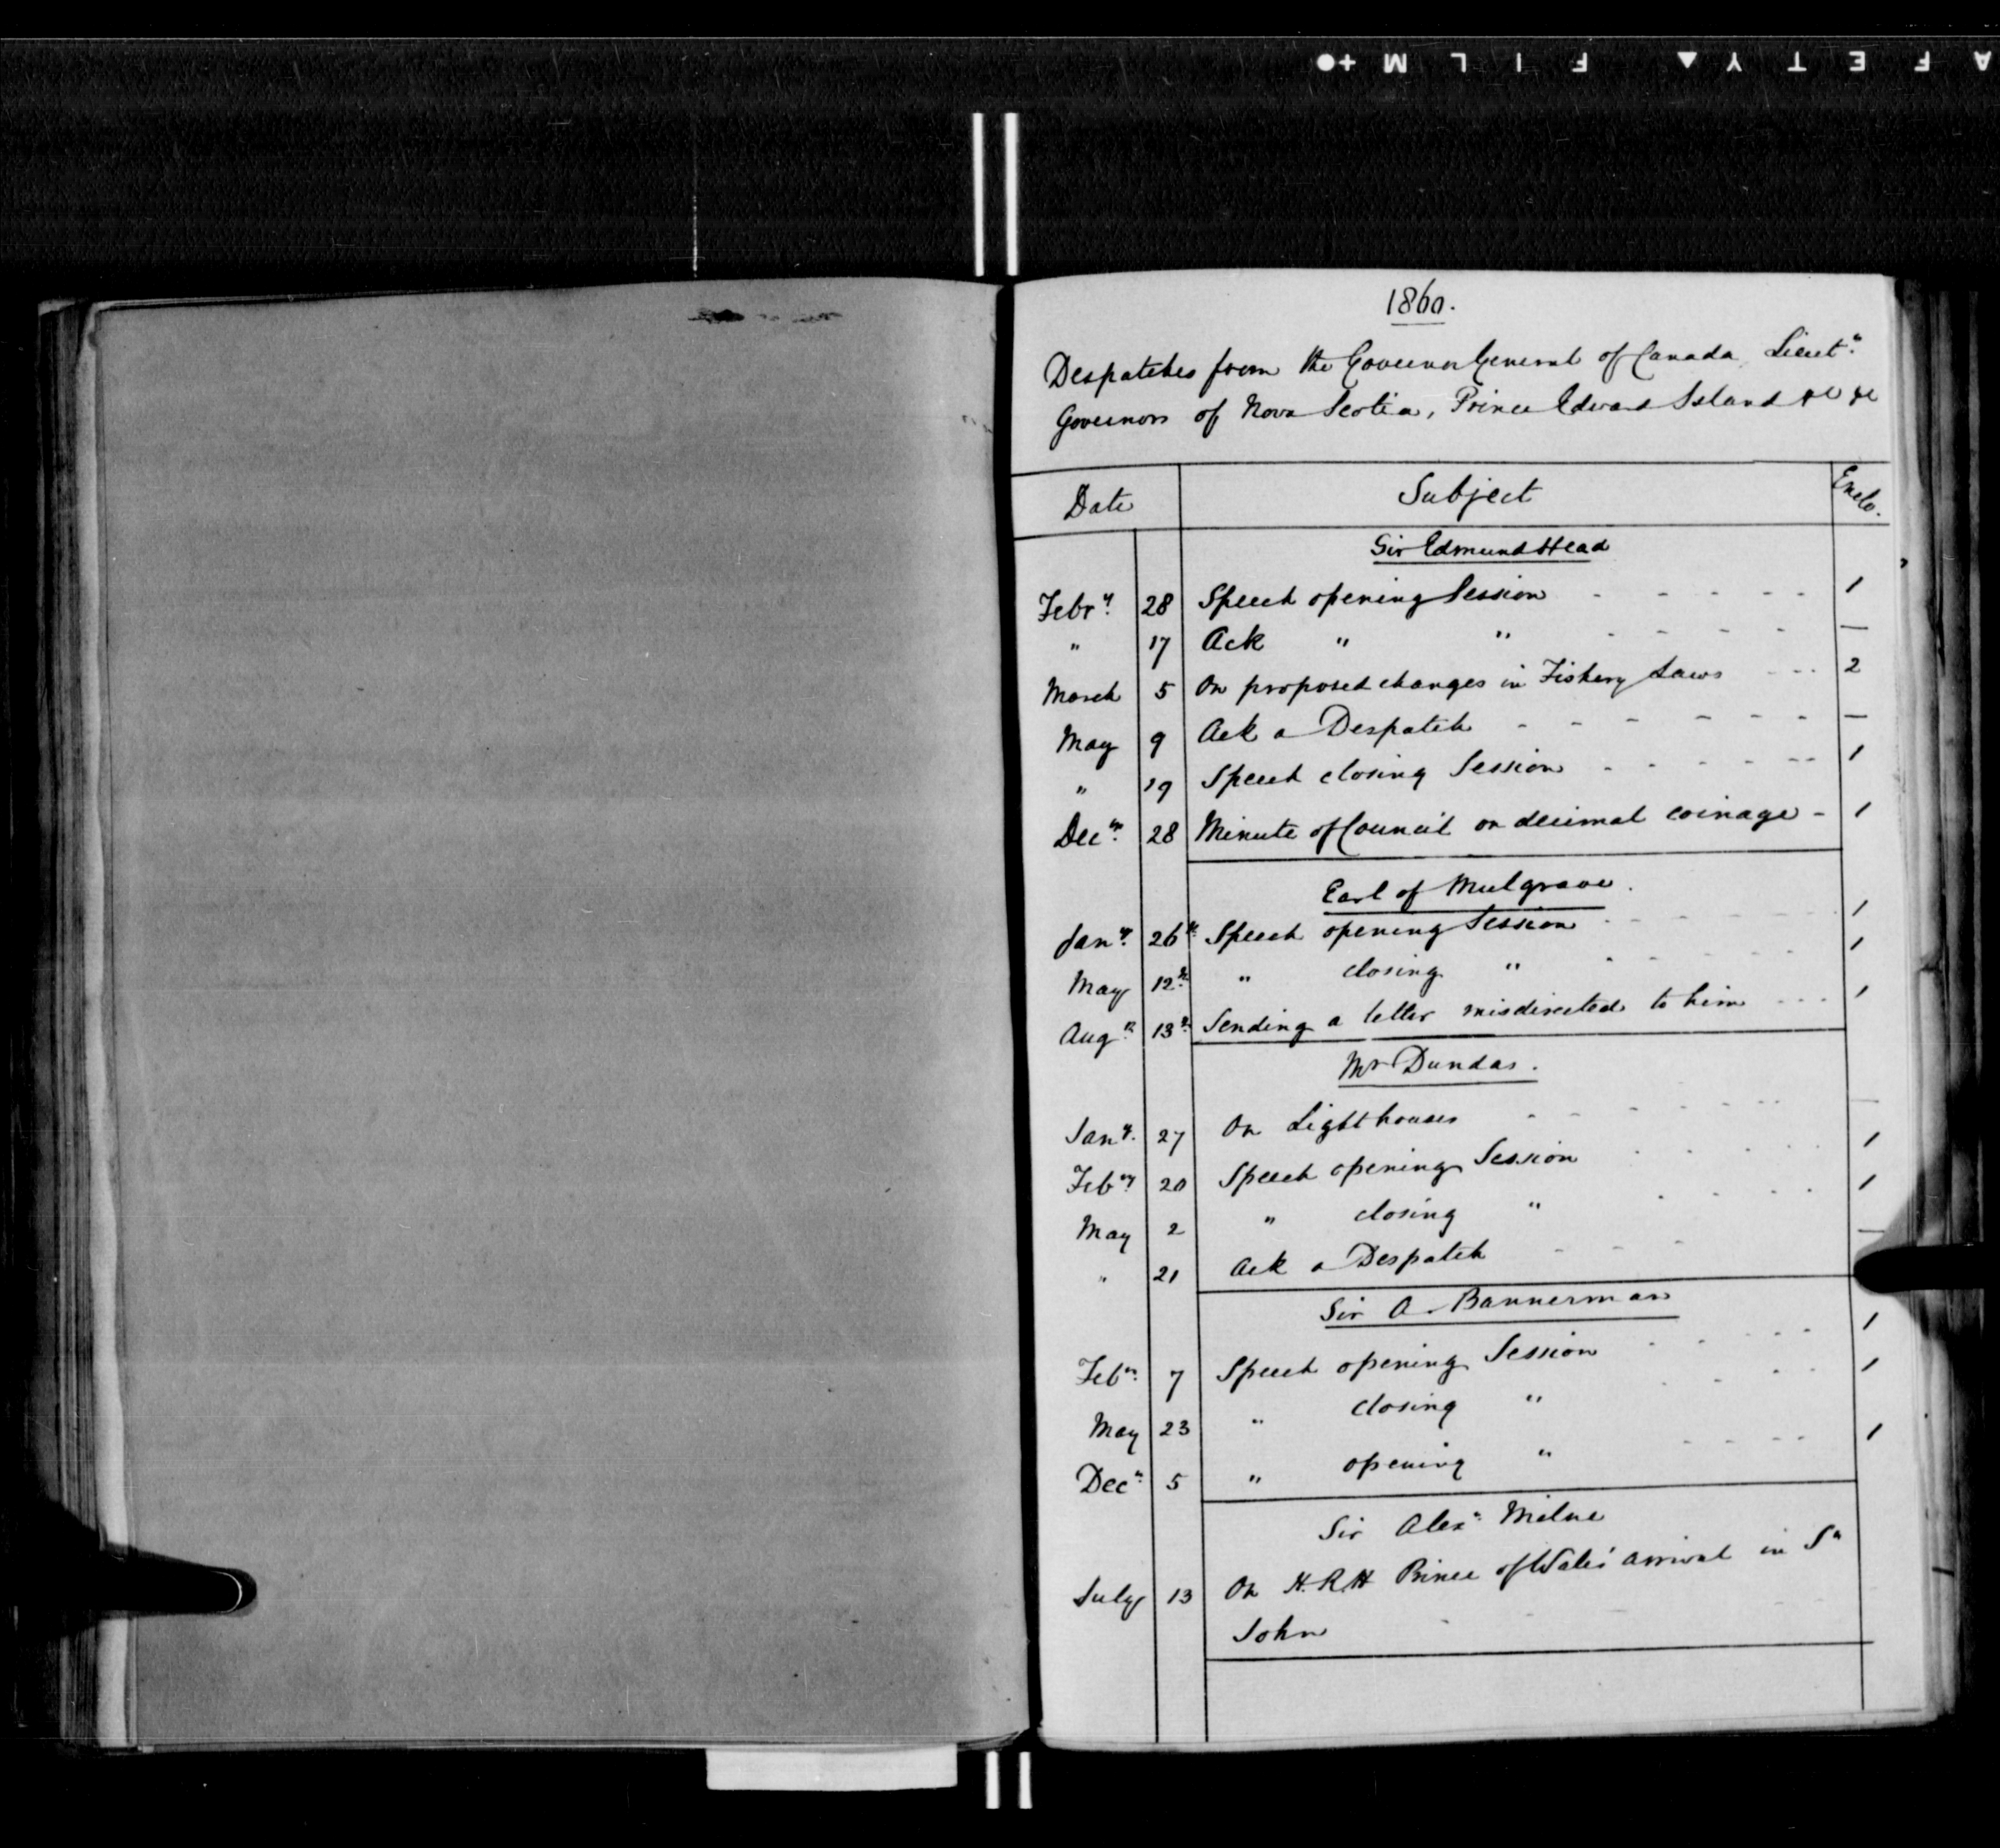 AFETY ▲ FILM +●
1860.
Despatches from the Governor General of Canada, Lieut.
Governors of Nova Scotia, Prince Edward Island &c &c
Date Subject Enclo.
Sir Edmund Head
Febry. 28 Speech opening Session - - - - - 1
" 17 Ack " " - - - - —
March 5 On proposed changes in Fishery Laws - - - 2
May 9 Ack a Despatch - - - - - - - —
" 19 Speech closing Session - - - - - - 1
Decr. 28 Minute of Council on decimal coinage - 1
Earl of Mulgrave.
Jany. 26th Speech opening Session - - - - - - 1
May 12th " closing " - - - - - 1
Augt. 13th Sending a letter misdirected to him - - - 1
Mr Dundas.
Jany. 27 On Lighthouses - - - - - - - —
Feby. 20 Speech opening Session - - - - 1
May 2 " closing " - - - - 1
" 21 Ack a Despatch - - - —
Sir A. Bannerman
Feby. 7 Speech opening Session - - - - - 1
May 23 " closing " - - - - 1
Decr. 5 " opening " - - - - 1
Sir Alexr. Milne
July 13 On H.R.H Prince of Wales' arrival in St
John - -